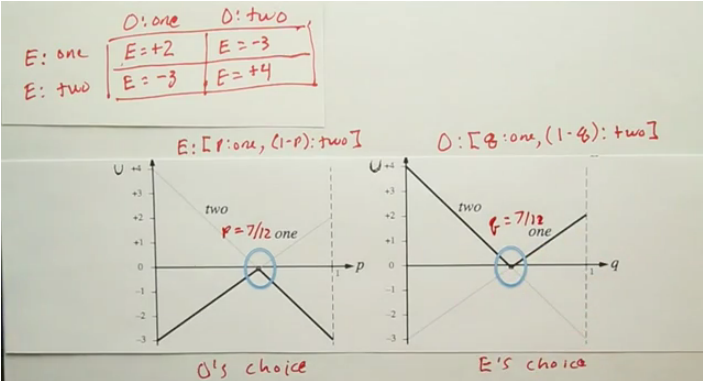 O: one O: two
E: one E=+2 E=-3
E: two E=-3 E=+4
E: [P: one, (1-P): two]
O: [q: one, (1-q): two]
U +4
+3
+2
+1
0
-1
-2
-3
two
P = 7/12 one
1
p
O's choice
U +4
+3
+2
+1
0
-1
-2
-3
two
q = 7/12
one
1
q
E's choice